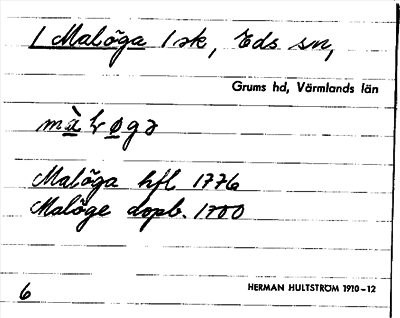 1 Malöga 1 sk, Eds sn,
Grums hd, Värmlands län
Malöga hfl 1776
Malöge dopb. 1700
6
HERMAN HULTSTRÖM 1910–12